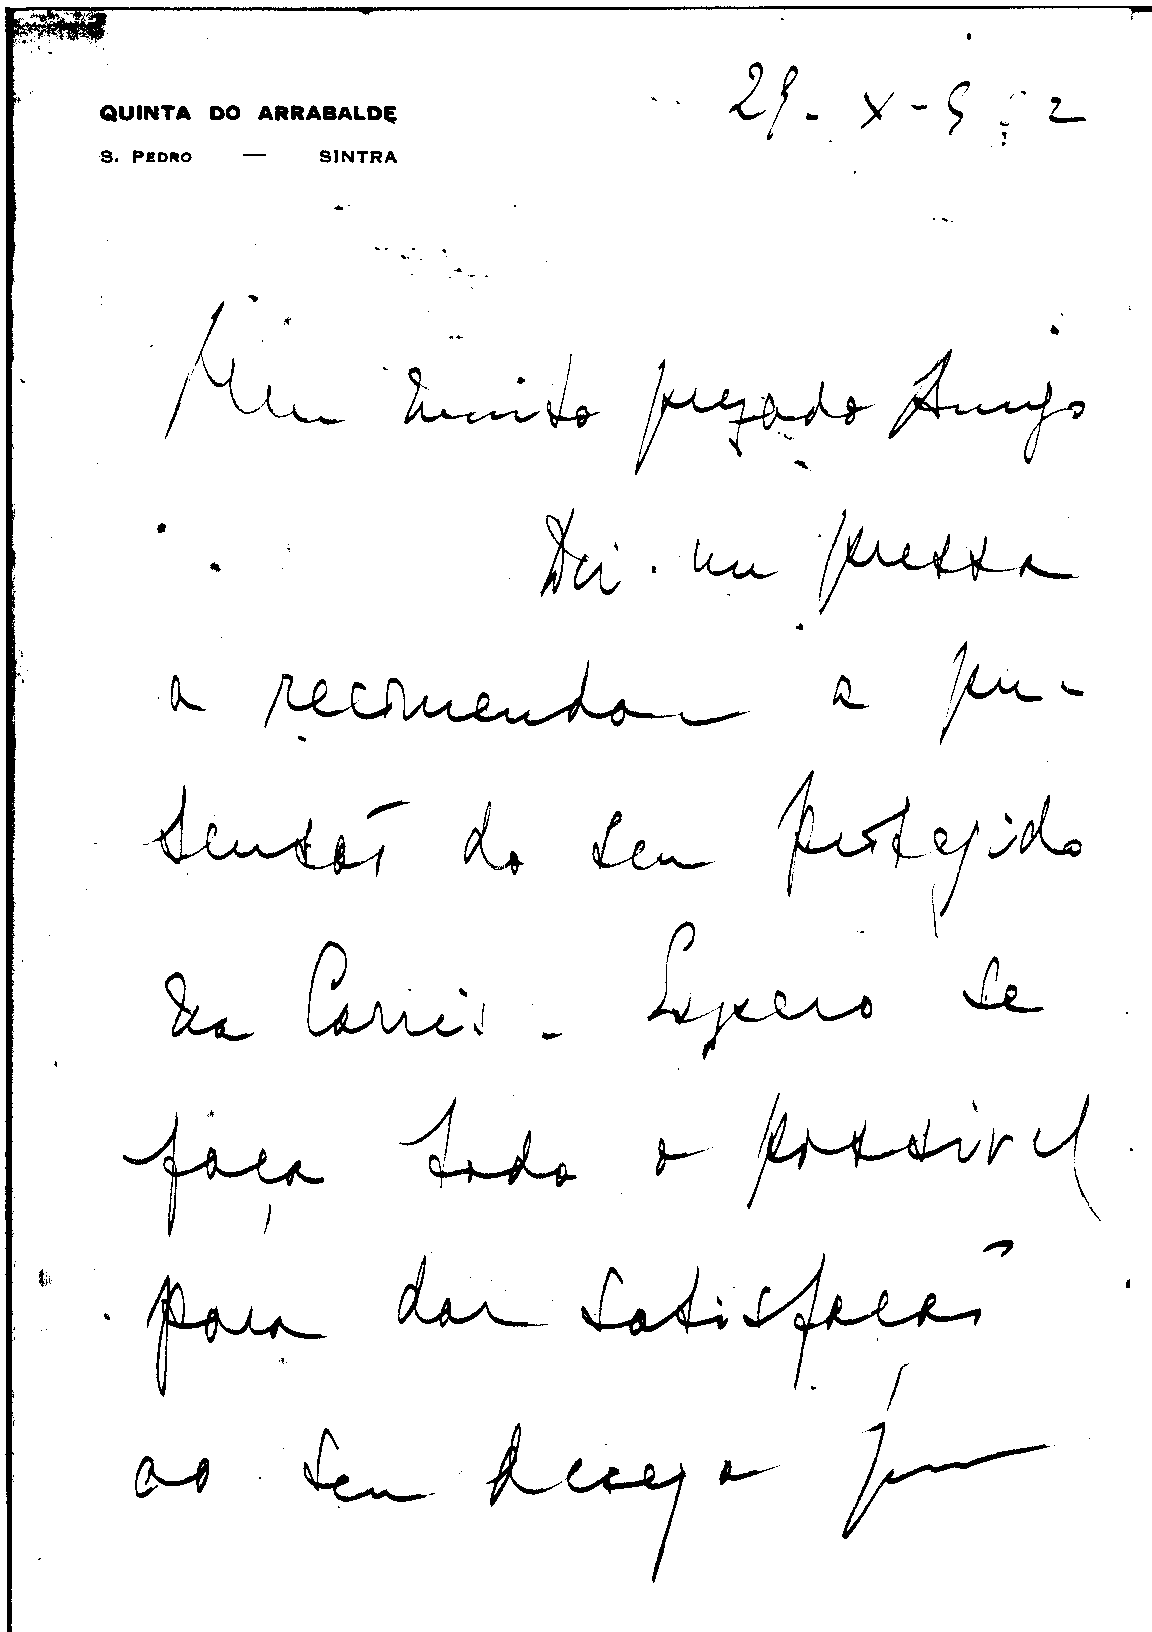 QUINTA DO ARRABALDE
S. PEDRO — SINTRA
29-X-952
Meu muito prezado Amigo
Dei-me pressa
a recomendar a pre-
tensão do seu protegido
na Carris. Espero se
faça todo o possivel
para dar satisfação
ao seu desejo